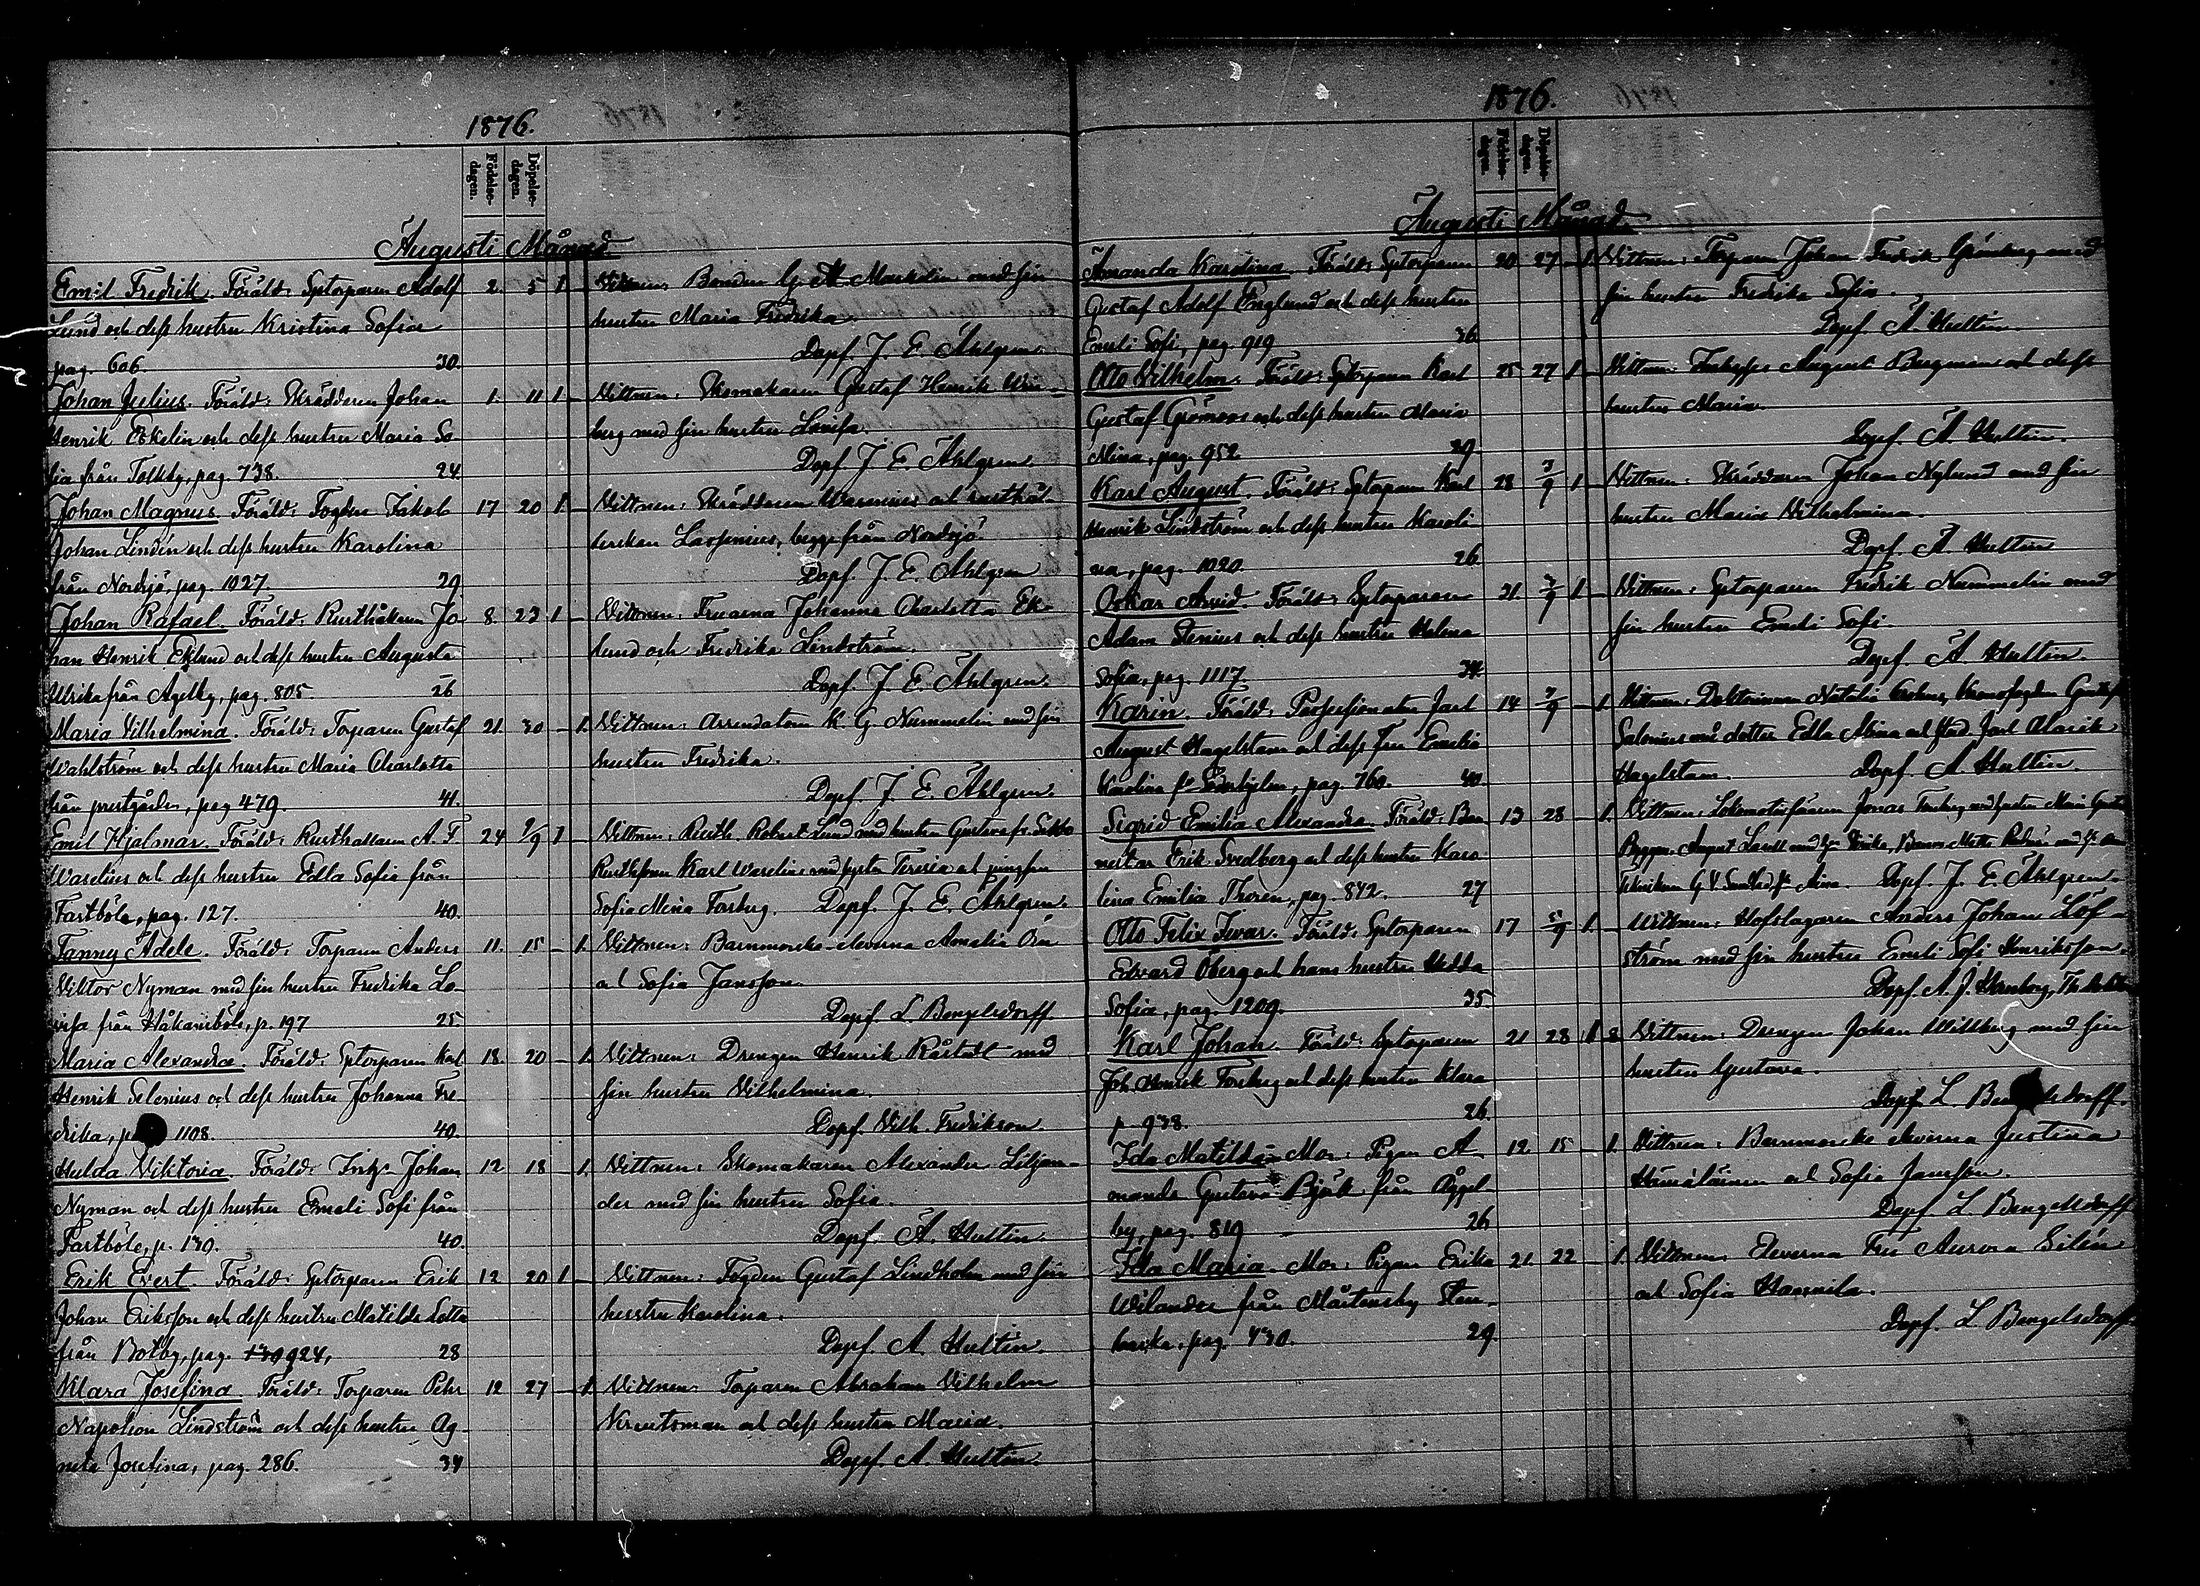 1876.
Födelse-dagen. Döpelse-dagen.
Augusti Månad.
Emil Fredrik. Föräld: Sptorparen Adolf 2 5 1 - Vittnen: Bonden G. A. Markelin med sin
Lund och dess hustru Kristina Sofia hustru Maria Fredrika.
pag. 606. 30. Döpf. J. E. Ahlgren.
Johan Julius. Föräld: Skräddaren Johan 1. 11 1 - Vittnen: Skomakaren Gustaf Henrik
Henrik Eskelin och dess hustru Maria So berg med sin hustru Lovisa.
fia från Tolkby, pag. 738. 24 Döpf. J. E. Ahlgren.
Johan Magnus. Föräld: Fogden Jakob 17 20 1 - Vittnen: Skräddaren Warenius och
Johan Lindén och dess hustru Karolina Lassenius, begge från Nordsjö.
från Nordsjö, pag. 1027. 29 Döpf. J. E. Ahlgren
Johan Rafael. Föräld: Rusthållaren Jo 8 23 1 - Vittnen: Fruarna Johanna Charlotta Ek-
han Henrik Eklund och dess hustru Augusta lund och Fredrika Lindström.
Ulrika från pag. 805 26 Döpf. J. E. Ahlgren.
Maria Vilhelmina. Föräld: Torparen Gustaf 21. 30 - 1. Vittnen: Arrendatorn K. G. Nummelin med sin
Wahlström och dess hustru Maria Charlotta hustru Fredrika.
från prestgården, pag 479. 41. Döpf. J. E. Ahlgren.
Emil Hjalmar. Föräld: Rusthållaren A. F. 24 9/9 1 - Vittnen: Rusth. Robert Lund med hustru Gustava fr.
Waselius och dess hustru Edla Sofia från Karl Waselius med syster och jungfrun
Fastböle, pag. 127. 40. Sofia Mina Forsberg. Döpf. J. E. Ahlgren.
Fanny Adele. Föräld: Torparen Anders 11. 15 - 1. Vittnen: Barnmorske-eleverna Amalia
Viktor Nyman med sin hustru Fredrika Lo- och Sofia Jansson.
visa från Håkansböle, p. 197 25 Döpf. L. Bengelsdorff
Maria Alexandra. Föräld: Sptorparen Karl 18. 20 - 1. Vittnen: Drengen Henrik Råstedt med
Henrik Selenius och dess hustru Johanna Fre sin hustru Vilhelmina.
drika, 1108. 40. Döpf. Vilh. Fredrikson
Hulda Viktoria. Föräld: Johan 12 18 - 1. Vittnen: Skomakaren Alexander Liljan-
Nyman och dess hustru Emeli Sofi från der med sin hustru Sofia.
Fastböle, p. 130. 40. Döpf. A. Hultin
Erik Evert. Föräld: Sptorparen Erik 12 20 1 - Vittnen: Fogden Gustaf Lindholm med sin
Johan Eriksson och dess hustru Matilda Lotta hustru Karolina.
från Botby, pag. 924, 28 Döpf. A. Hultin.
Klara Josefina. Föräld: Torparen Pehr 12 27 - 1. Vittnen: Torparen Abraham Vilhelm
Napoleon Lindström och dess hustru Ag- Kreutsman och dess hustru Maria.
neta Josefina, pag. 286. 34 Döpf. A. Hultin.
1876.
Födelse-dagen. Döpelse-dagen.
Augusti Månad.
Amanda Karolina. Föräld: Sptorparen 20 27 - 1. Vittnen: Torparen Johan Fredrik Grönberg med
Gustaf Adolf Englund och dess hustru sin hustru Fredrika Sofia.
Emeli Sofi, pag. 919 36 Döpf. A. Hultin.
Otto Vilhelm. Föräld: Sptorparen Karl 25 27 1 - Vittnen: August Bergman och dess
Gustaf Grönroos och dess hustru Maria hustru Maria.
Mina, pag. 952 39 Döpf. A. Hultin.
Karl August. Föräld: Sptorparen Karl 28 3/9 1 - Vittnen: Skräddaren Johan Nylund med sin
Henrik Lindström och dess hustru Karoli hustru Maria Vilhelmina.
na, pag. 1020. 26 Döpf. A. Hultin
Oskar Arvid. Föräld: Sptorparen 21. 3/9 1 - Vittnen: Sptorparen Fredrik Nummelin med
Adam Stenius och dess hustru Helena sin hustru Emeli Sofi.
Sofia, pag. 1117. 34. Döpf. A. Hultin.
Karin. Föräld: Possessionaten Jarl 14 7/9 - 1. Vittnen: Doktorinnan Natalia Kronofogden Gustaf
August Hagelstam och dess fru Emelia Salonius och dotter Edla Mina och stud. Jarl Alarik
Karolina f. Söderhjelm, pag. 760. 40 Hagelstam. Döpf. A. Hultin.
Sigrid Emilia Alexandra. Föräld: Ban 13 28 - 1. Vittnen: Jonas Forsberg med hustru Maria
mästar Erik Svedberg och dess hustru Karo August
lina Emilia Thoren, pag. 842. 27 Döpf. J. E. Ahlgren.
Otto Felix Ivar. Föräld: Sptorparen 17 5/9 1 - Vittnen: Hofslagaren Anders Johan Löf-
Edvard Öberg och hans hustru Hedda ström med sin hustru Emeli Sofi Henriksson.
Sofia, pag. 1209. 35. Döpf. A. J.
Karl Johan. Föräld: Sptorparen 21 28 1 Vittnen: Drengen Johan Willberg med sin
Joh. Henrik Forsberg och dess hustru Klara hustru Gustava.
p. 938. 26. Döpf. L. Bengelsdorff.
Ida Matilda. Mor: Pigan A 12 15 - 1. Vittnen: Barnmorske eleverna Justina
manda Gustava Björk från Åggel- Hämäläinen och Sofia Jansson.
by, pag. 819 26 Döpf. L. Bengelsdorff
Ida Maria. Mor: Pigan Erika 21. 22 - 1. Vittnen: Eleverna Fru Aurora Silén
Wilander från Mårtensby Sten- och Sofia Hannila.
backa, pag. 430. 29. Döpf. L. Bengelsdorff